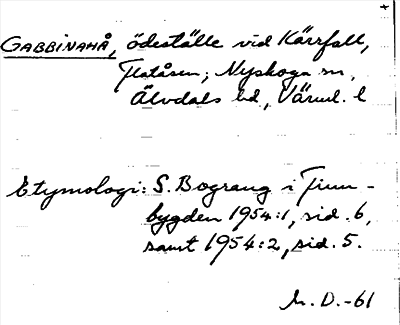 GABBINAHÅ, ödeställe vid Kärrfall,
Flatåsen, Nyskoga sn,
Älvdals hd, Värml. l
Etymologi: S. Bograng i Finn-
bygden 1954:1, sid. 6,
samt 1954:2, sid. 5.
M. D. -61